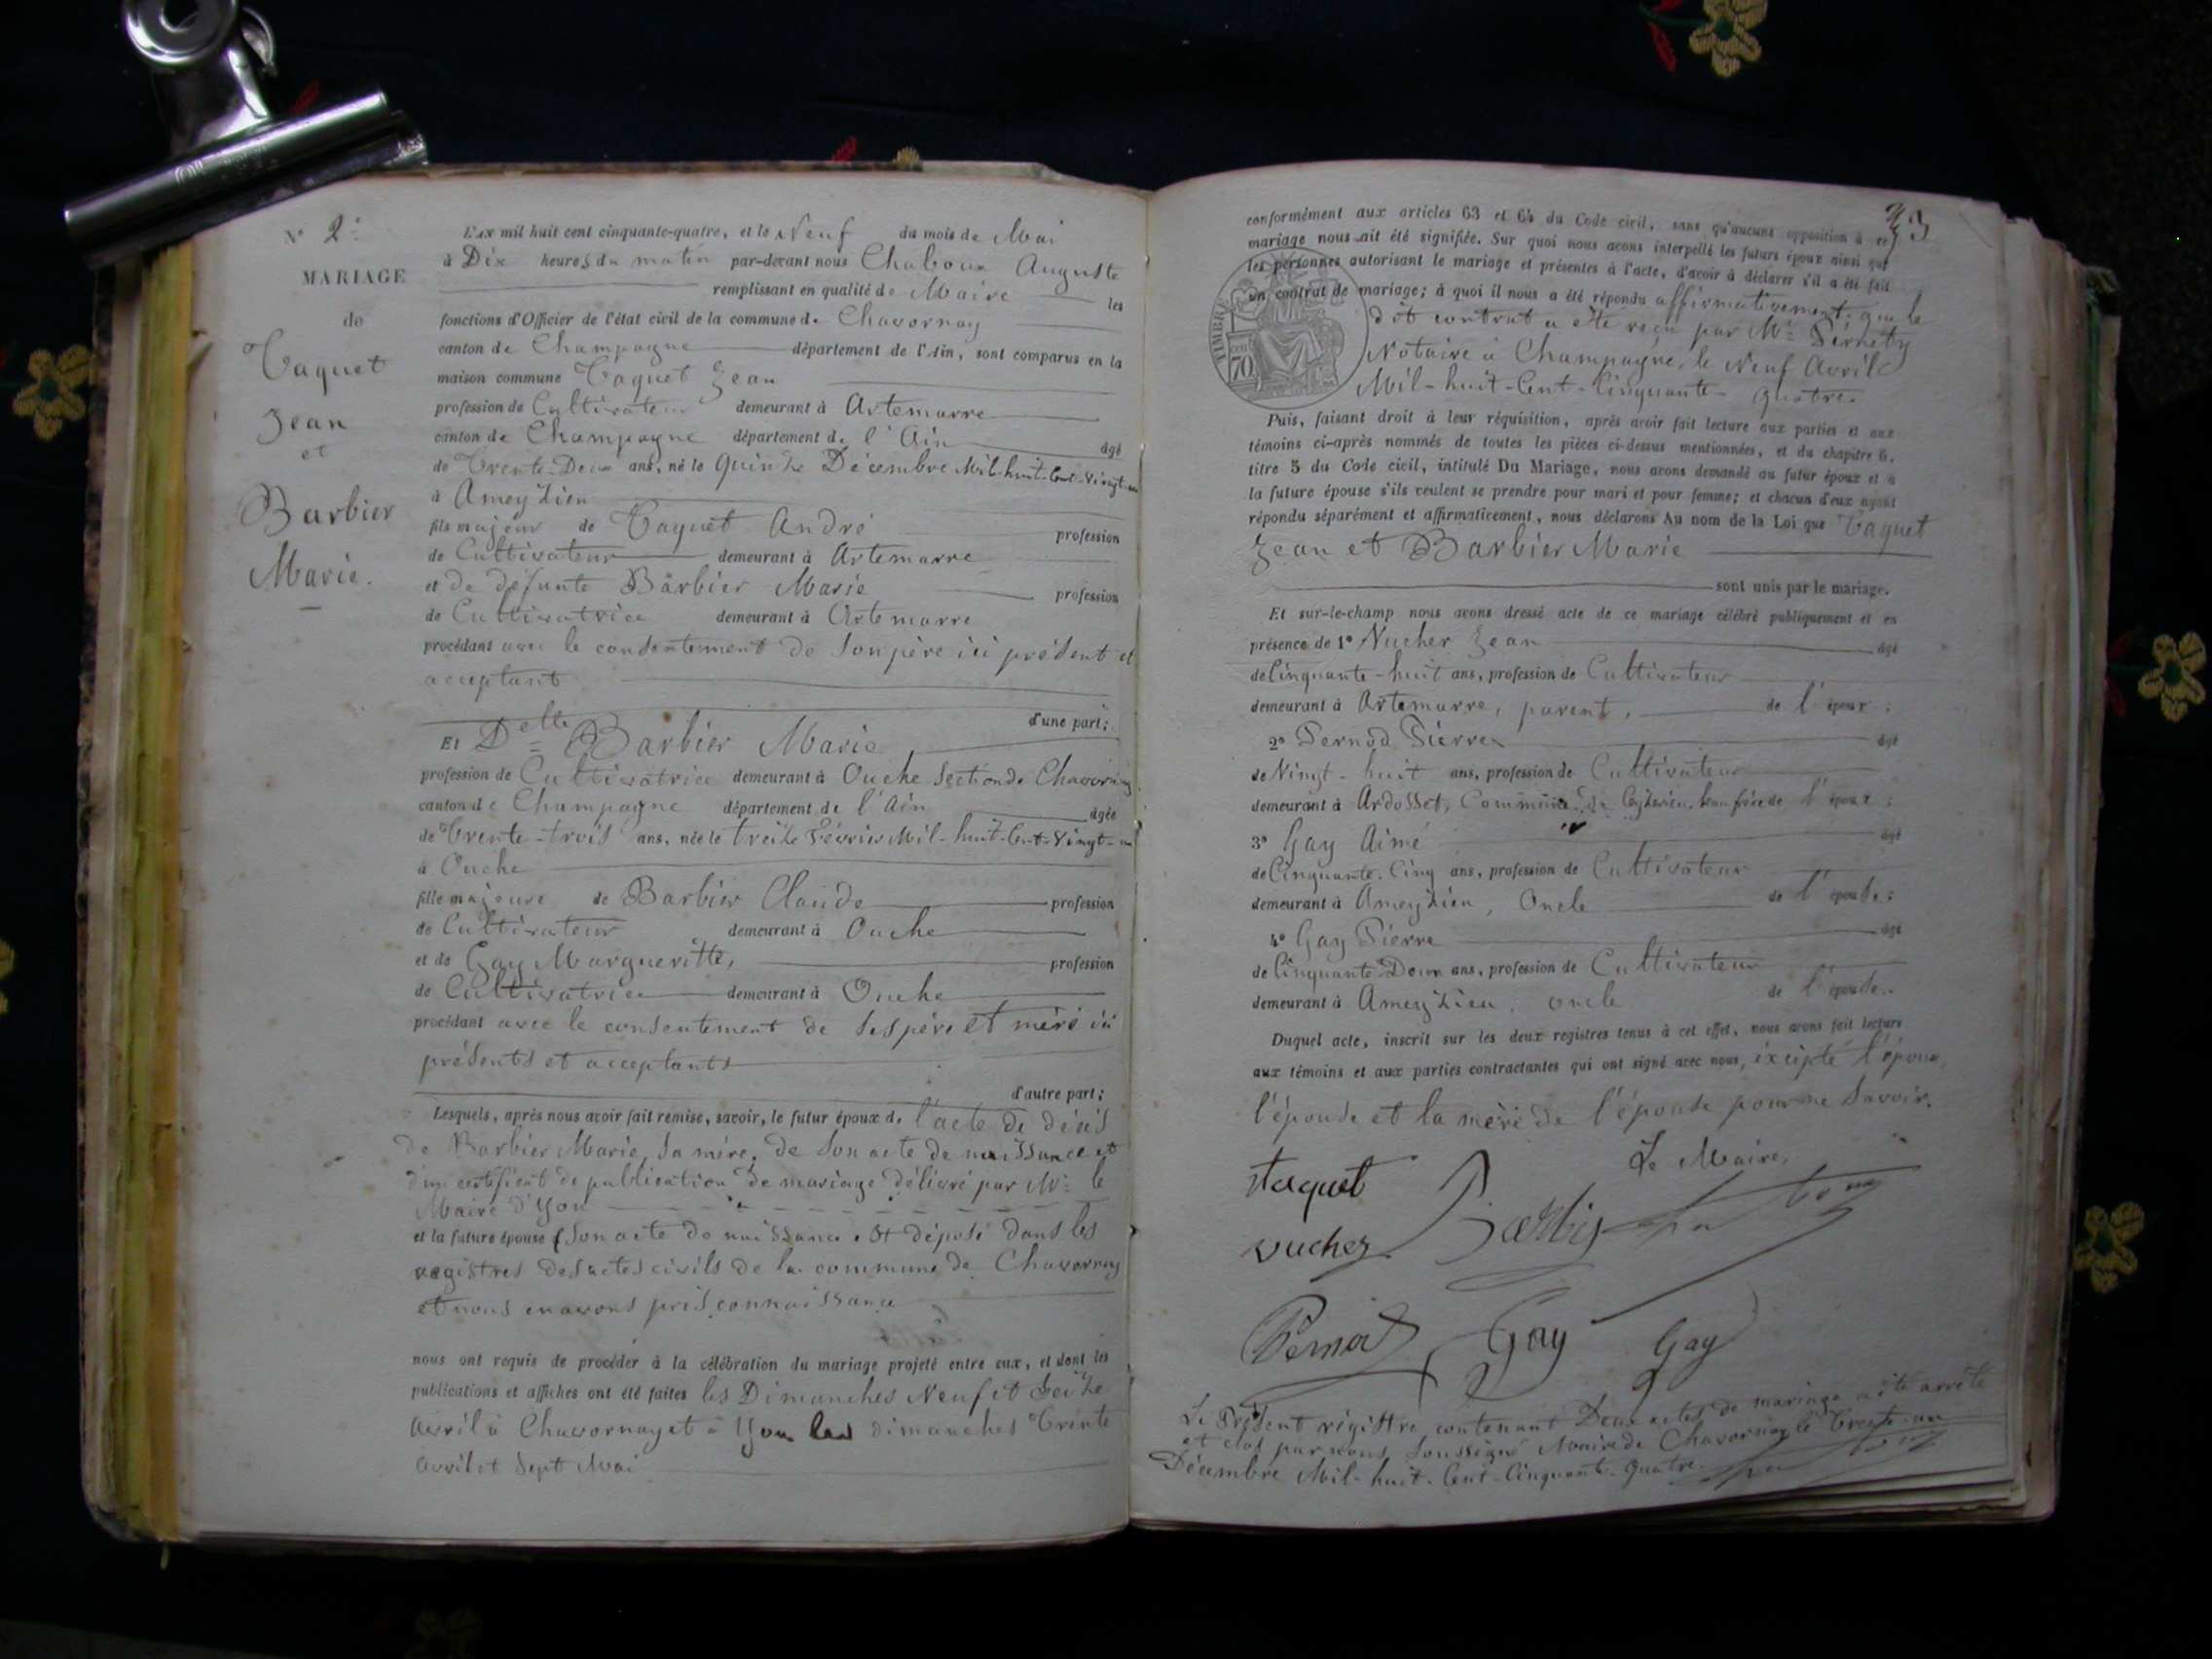 N° 2.
MARIAGE
de
Taquet
Jean
et
Barbier
Marie.
L'an mil huit cent cinquante-quatre, et le Neuf du mois de Mai
à Dix heures du matin par-devant nous Chaboux Auguste
remplissant en qualité de Maire les
fonctions d'Officier de l'état civil de la commune de Chavornay
canton de Champagne département de l'Ain, sont comparus en la
maison commune Taquet Jean
profession de Cultivateur demeurant à Artemarre
canton de Champagne département de l'Ain âgé
de Trente-Deux ans, né le Quinze Décembre Mil-huit-Cent-Vingt-un
à Ameyzieu
fils majeur de Taquet André profession
de Cultivateur demeurant à Artemarre
et de défunte Barbier Marie profession
de Cultivatrice demeurant à Artemarre
procédant avec le consentement de son père ici présent et
acceptant
d'une part;
Et Delle Barbier Marie
profession de Cultivatrice demeurant à Ouche Section de Chavornay
canton de Champagne département de l'Ain âgée
de Trente-trois ans, née le treize Février Mil-huit-Cent-Vingt-un
à Ouche
fille majeure de Barbier Claude profession
de Cultivateur demeurant à Ouche
et de Gay Margueritte, profession
de Cultivatrice demeurant à Ouche
procédant avec le consentement de ses père et mère ici
présents et acceptants
d'autre part;
Lesquels, après nous avoir fait remise, savoir, le futur époux de l'acte de décès
de Barbier Marie, sa mère, de son acte de naissance et
d'un certificat de publication de mariage délivré par Mr le
Maire d'Yon
et la future épouse son acte de naissance est déposé dans les
registres des actes civils de la commune de Chavornay
et nous en avons pris connaissance
nous ont requis de procéder à la célébration du mariage projeté entre eux, et dont les
publications et affiches ont été faites les Dimanches Neuf et Seize
Avril à Chavornay et à Yon les dimanches Trente
Avril et Sept Mai
conformément aux articles 63 et 64 du Code civil, sans qu'aucune opposition à ce
mariage nous ait été signifiée. Sur quoi nous avons interpellé les futurs époux ainsi que
les personnes autorisant le mariage et présentes à l'acte, d'avoir à déclarer s'il a été fait
un contrat de mariage; à quoi il nous a été répondu affirmativement, que le
dit contrat a été reçu par Me Pernety
Notaire à Champagne, le Neuf Avril
Mil-huit-Cent-Cinquante-Quatre.
TIMBRE
70
Puis, faisant droit à leur réquisition, après avoir fait lecture aux parties et aux
témoins ci-après nommés de toutes les pièces ci-dessus mentionnées, et du chapitre 6,
titre 5 du Code civil, intitulé Du Mariage, nous avons demandé au futur époux et à
la future épouse s'ils veulent se prendre pour mari et pour femme; et chacun d'eux ayant
répondu séparément et affirmativement, nous déclarons Au nom de la Loi que Taquet
Jean et Barbier Marie
sont unis par le mariage.
Et sur-le-champ nous avons dressé acte de ce mariage célébré publiquement et en
présence de 1° Vucher Jean âgé
de Cinquante-huit ans, profession de Cultivateur
demeurant à Artemarre, parent, de l'époux;
2° Pernod Pierre âgé
de Vingt-huit ans, profession de Cultivateur
demeurant à Ardosset, Commune de Ceyzerieu, beau frère de l'époux;
3° Gay Aimé âgé
de Cinquante-Cinq ans, profession de Cultivateur
demeurant à Ameyzieu, Oncle de l'épouse;
4° Gay Pierre âgé
de Cinquante Deux ans, profession de Cultivateur
demeurant à Ameyzieu, oncle de l'épouse.
Duquel acte, inscrit sur les deux registres tenus à cet effet, nous avons fait lecture
aux témoins et aux parties contractantes qui ont signé avec nous, éxcepté l'époux,
l'épouse et la mère de l'épouse pour ne savoir.
Le Maire,
taquet Barbier Chaboux
vucher
Pernod Gay Gay
Le Présent régistre contenant Deux actes de mariage a été arrêté
et clos par nous soussigné Maire de Chavornay le Trente-un
Décembre Mil-huit-Cent-Cinquante-Quatre. Chaboux